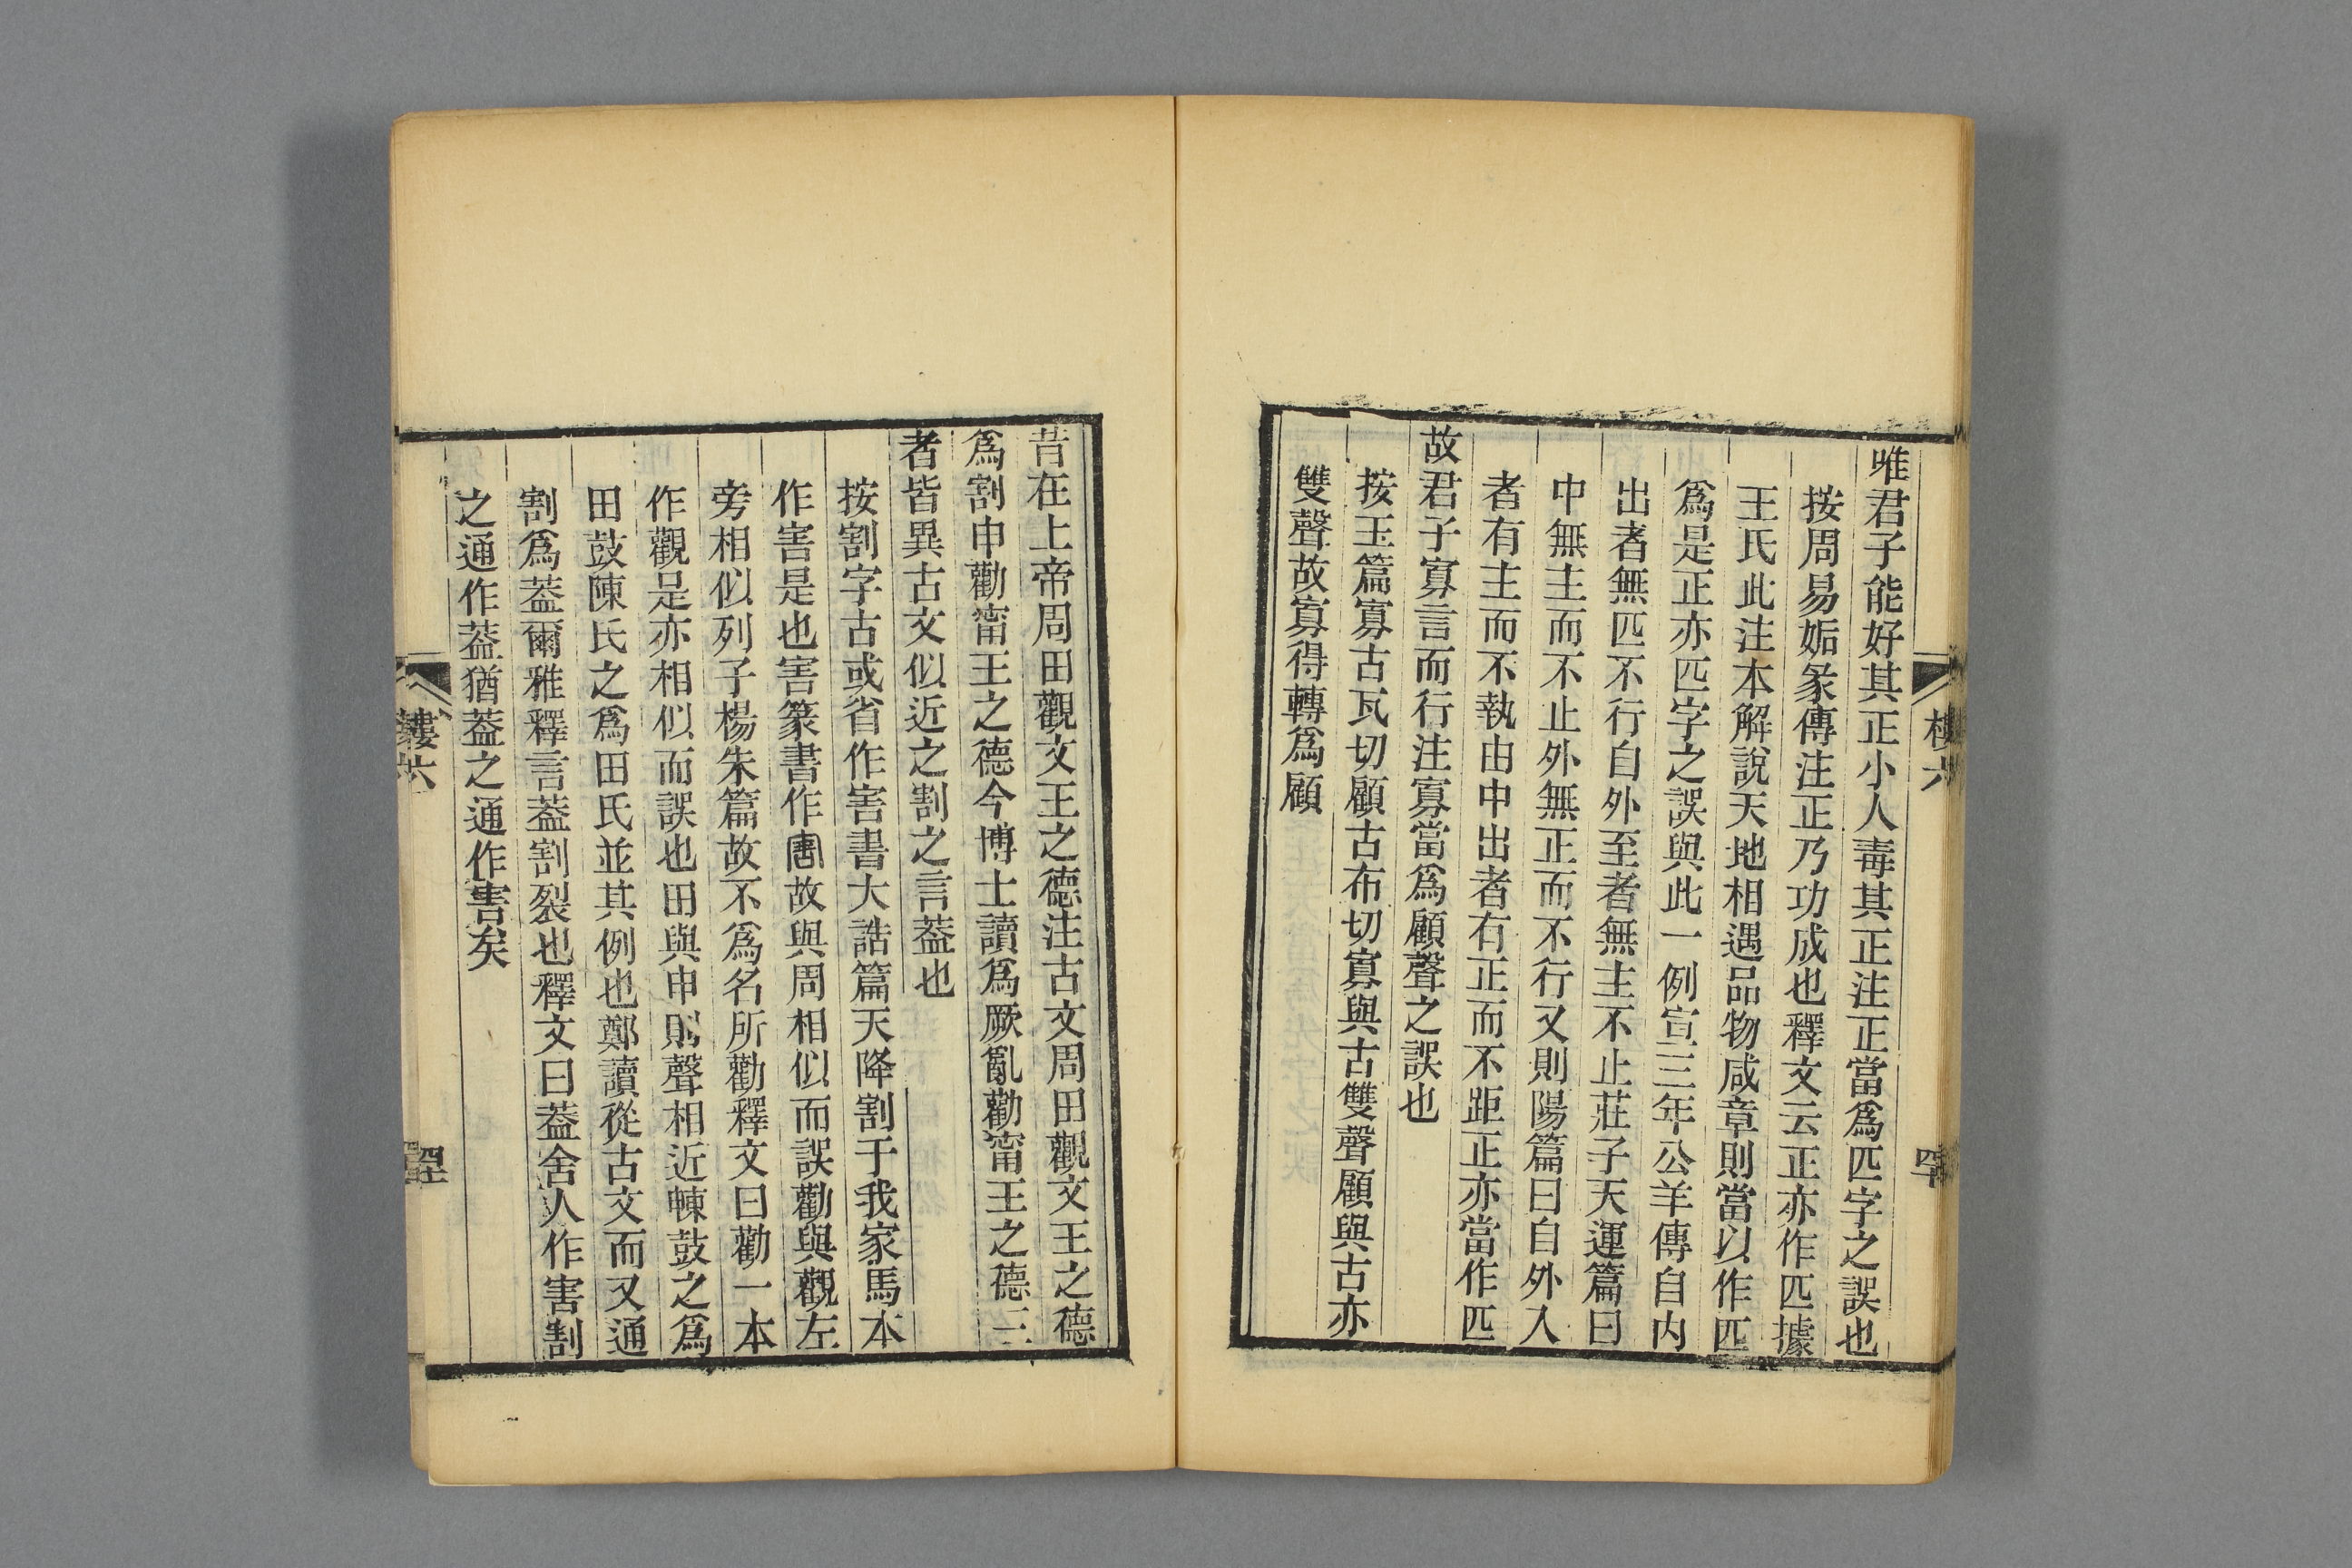 唯君子能好其正小人毒其正注正當爲匹字之誤也
按周易姤彖傳注正乃功成也釋文云正亦作匹據
王氏此注本解說天地相遇品物咸章則當以作匹
爲是正亦匹字之誤與此一例宣三年公羊傳自內
出者無匹不行自外至者無主不止莊子天運篇曰
中無主而不止外無正而不行又則陽篇曰自外入
者有主而不執由中出者有正而不距正亦當作匹
故君子寡言而行注寡當爲顧聲之誤也
按玉篇寡古瓦切顧古布切寡與古雙聲顧與古亦
雙聲故寡得轉爲顧
昔在上帝周田觀文王之德注古文周田觀文王之德
爲割申勸甯王之德今博士讀爲厥亂勸甯王之德三
者皆異古文似近之割之言葢也
按割字古或省作害書大誥篇天降割于我家馬本
作害是也害篆書作𡩀故與周相似而誤勸與觀左
旁相似列子楊朱篇故不爲名所勸釋文曰勸一本
作觀是亦相似而誤也田與申則聲相近㯥鼓之爲
田鼓陳氏之爲田氏並其例也鄭讀從古文而又通
割爲葢爾雅釋言葢割裂也釋文曰葢舍人作害割
之通作葢猶葢之通作害矣